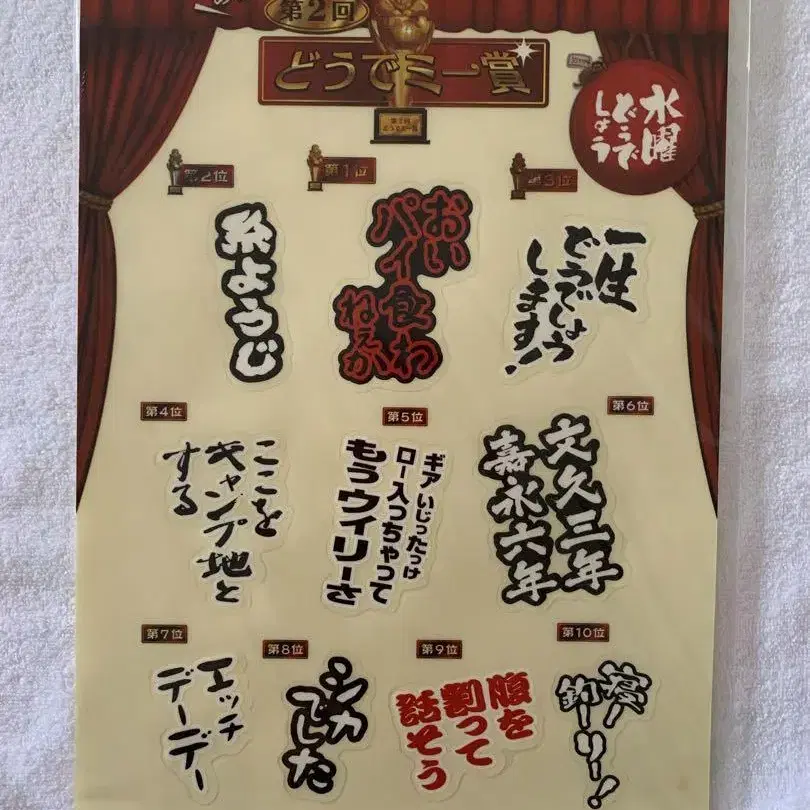 第2回
どうでミー賞
第2回
どうでミー賞
水曜
どうで
しょう
第2位
第1位
第3位
糸ようじ
おい
パイ食わ
ねぇか
一生
どうでしょう
します!
第4位
第5位
第6位
ここを
キャンプ地と
する
ギアいじったっけ
ロー入っちゃって
もうウイリーさ
文久三年
嘉永六年
第7位
第8位
第9位
第10位
エッチ
デーデー
シカ
でした
腹を
割って
話そう
宴ー
釣ーりー!